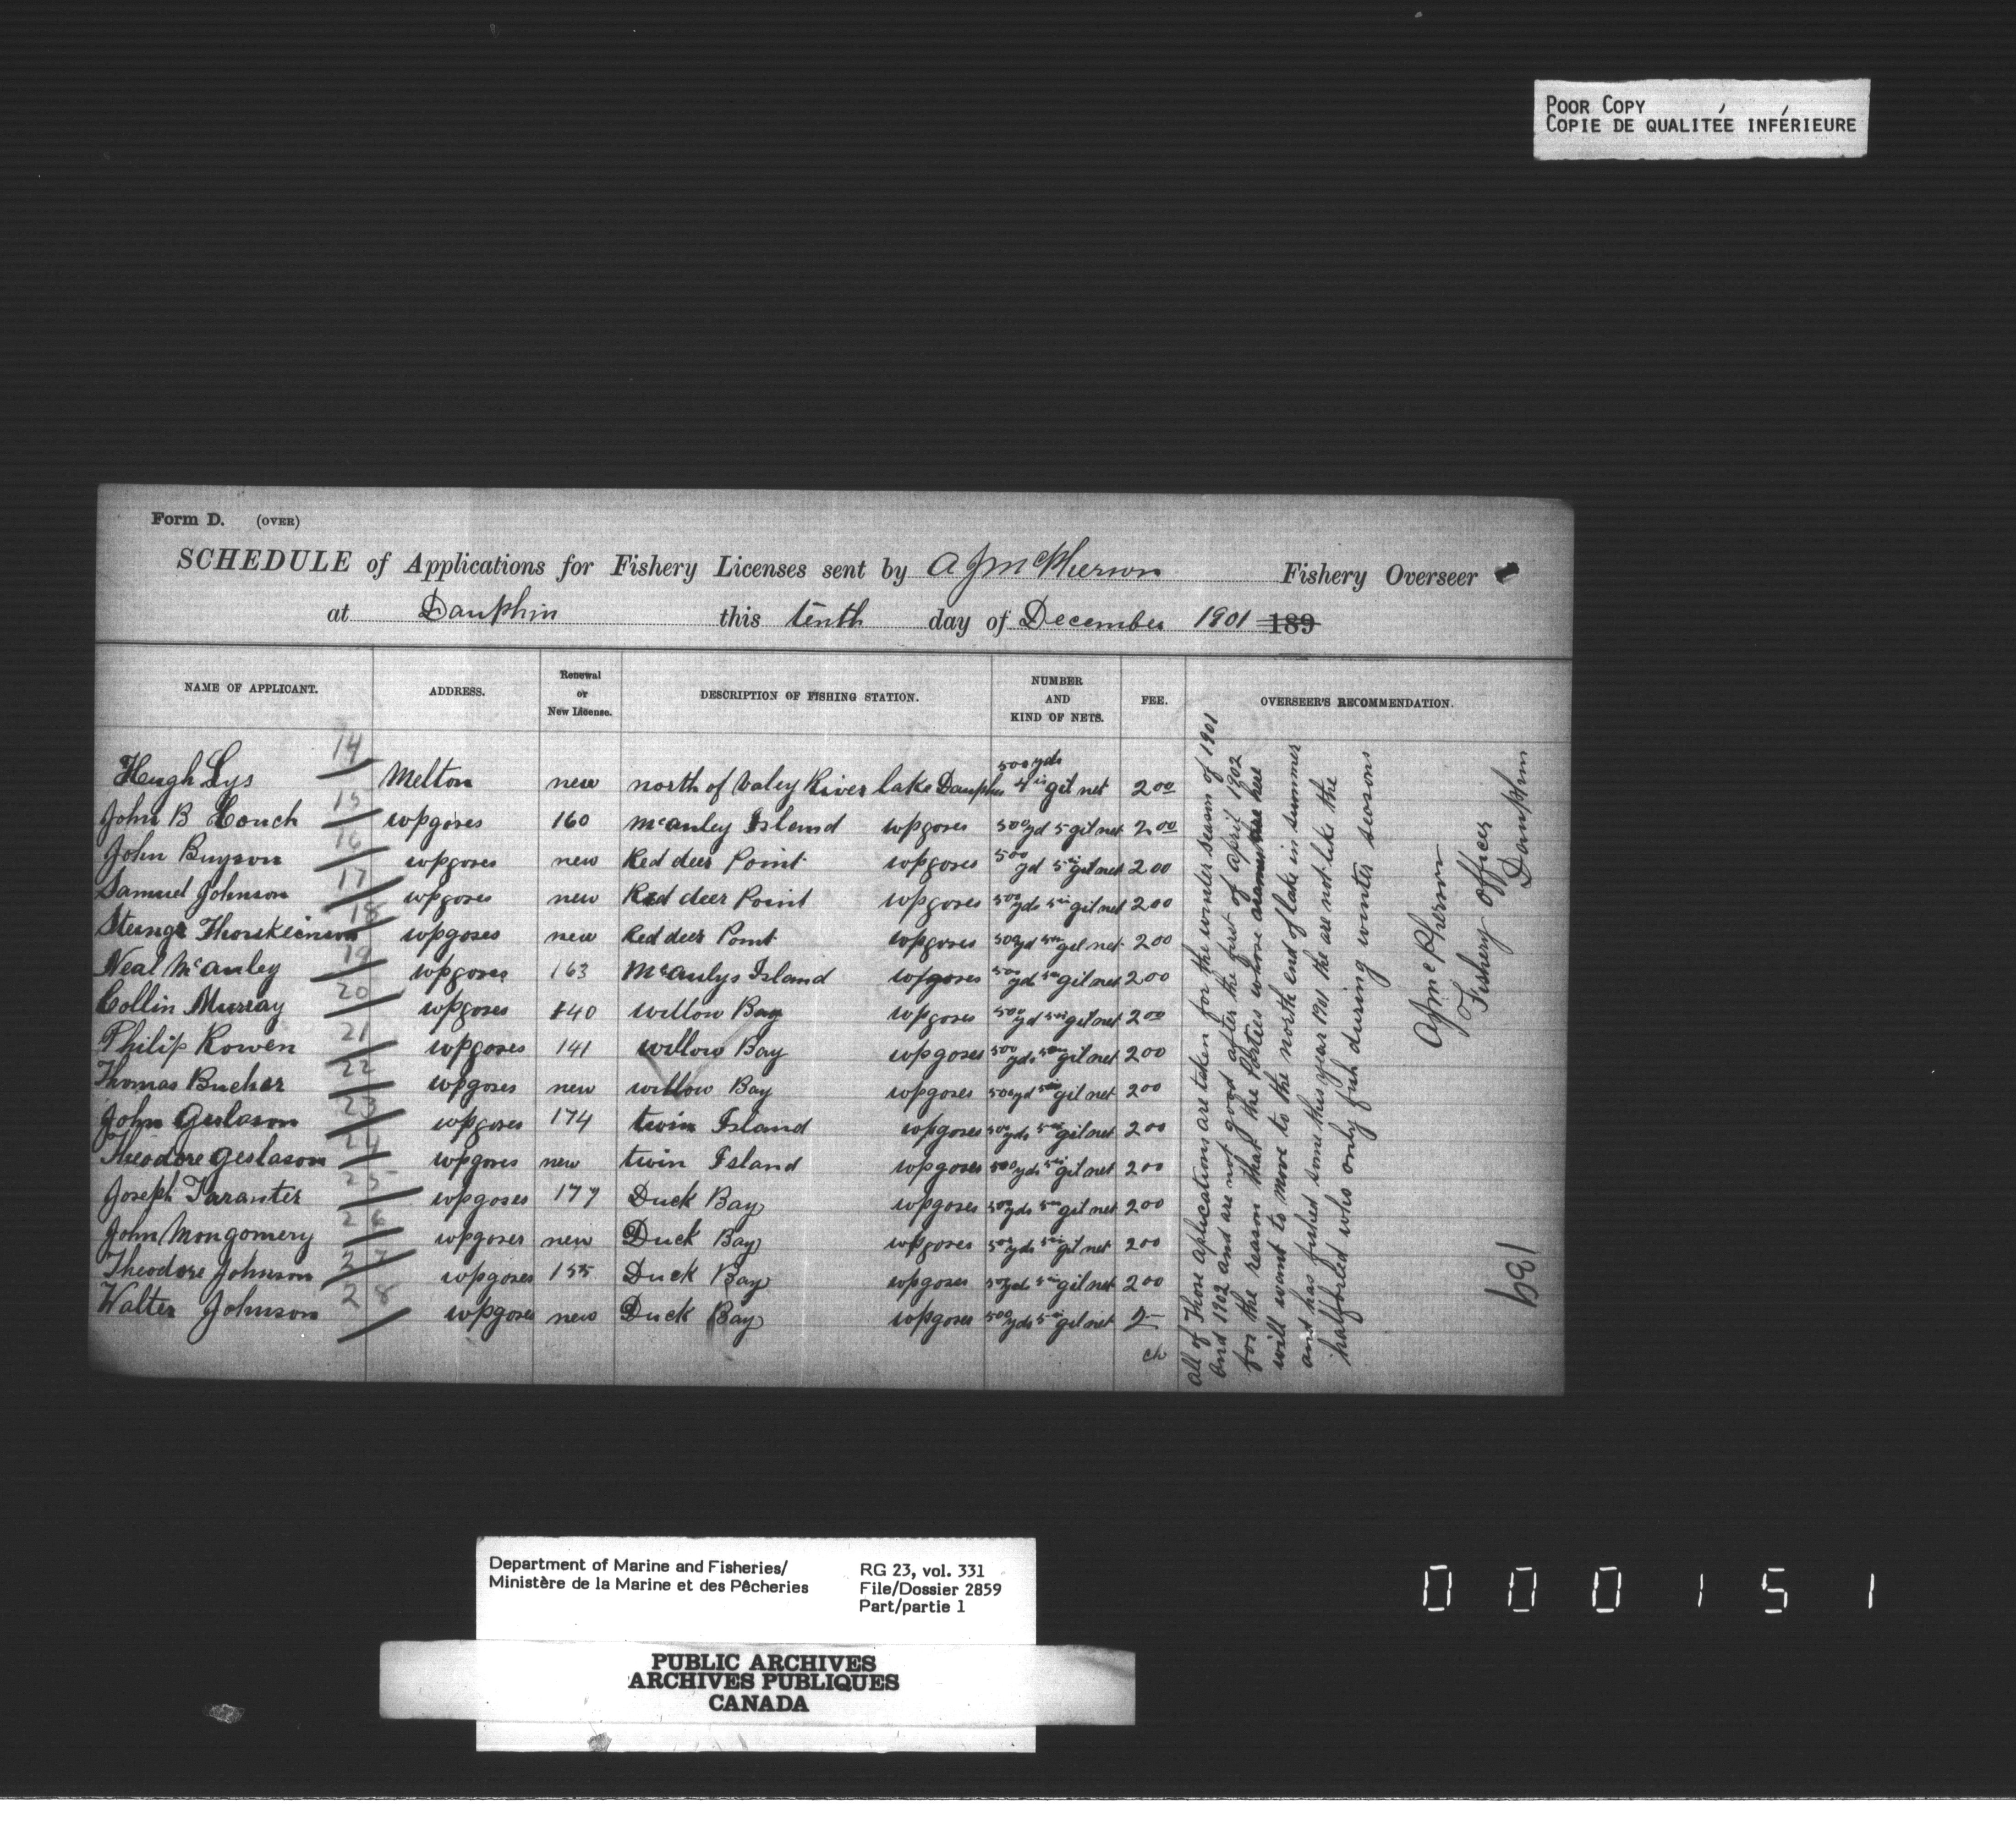 POOR COPY
COPIE DE QUALITÉE INFÉRIEURE
Form D. (OVER)
SCHEDULE of Applications for Fishery Licenses sent by A J McPherson Fishery Overseer
at Dauphin this tenth day of December 1901 189
NAME OF APPLICANT. ADDRESS. Renewal or New License. DESCRIPTION OF FISHING STATION. NUMBER AND KIND OF NETS. FEE. OVERSEER'S RECOMMENDATION.
Hugh Lys 14 Melton new north of Valey River lake Dauphin 500 yds 4 in gil net 2 00
John B Couch 15 wpgoses 160 McAuley Island wpgoses 500 yd 5 gil net 2 00
John Buyson 16 wpgoses new Red deer Point wpgoses 500 yd 5 in gil net 2 00
Samuel Johnson 17 wpgoses new Red deer Point wpgoses 500 yds 5 in gil net 2 00
18 wpgoses new Red deer Point wpgoses 500 yd 5 in gil net 2 00
Neal McAuley 19 wpgoses 163 McAulys Island wpgoses 500 yds 5 in gil net 2 00
Collin Murray 20 wpgoses 140 willow Bay wpgoses 500 yd 5 in gil net 2 00
Philip Rowen 21 wpgoses 141 willow Bay wpgoses 500 yds 5 in gil net 2 00
Thomas Bucher 22 wpgoses new willow Bay wpgoses 500 yd 5 in gil net 2 00
John Geslason 23 wpgoses 174 twin Island wpgoses 500 yds 5 in gil net 2 00
Theodore Geslason 24 wpgoses new twin Island wpgoses 500 yds 5 in gil net 2 00
Joseph Taranter 25 wpgoses 177 Duck Bay wpgoses 500 yds 5 in gil net 2 00
John Mongomery 26 wpgoses new Duck Bay wpgoses 500 yds 5 in gil net 2 00
Theodore Johnson 27 wpgoses 155 Duck Bay wpgoses 500 yd 5 in gil net 2 00
Walter Johnson 28 wpgoses new Duck Bay wpgoses 500 yds 5 in gil net 2
ch
all of Those aplication are taken for the winter season of 1901
and 1902 and are not good after the first of april 1902
for the reason that the Parties whose are here
will want to move to the north end of lake in summer
and has fished some this year 1901 the are not like the
halfbrled who only fish during winter seosons
A J McPherson
Fishery officer
Dauphin
189
Department of Marine and Fisheries/
Ministère de la Marine et des Pêcheries
RG 23, vol. 331
File/Dossier 2859
Part/partie 1
PUBLIC ARCHIVES
ARCHIVES PUBLIQUES
CANADA
000151